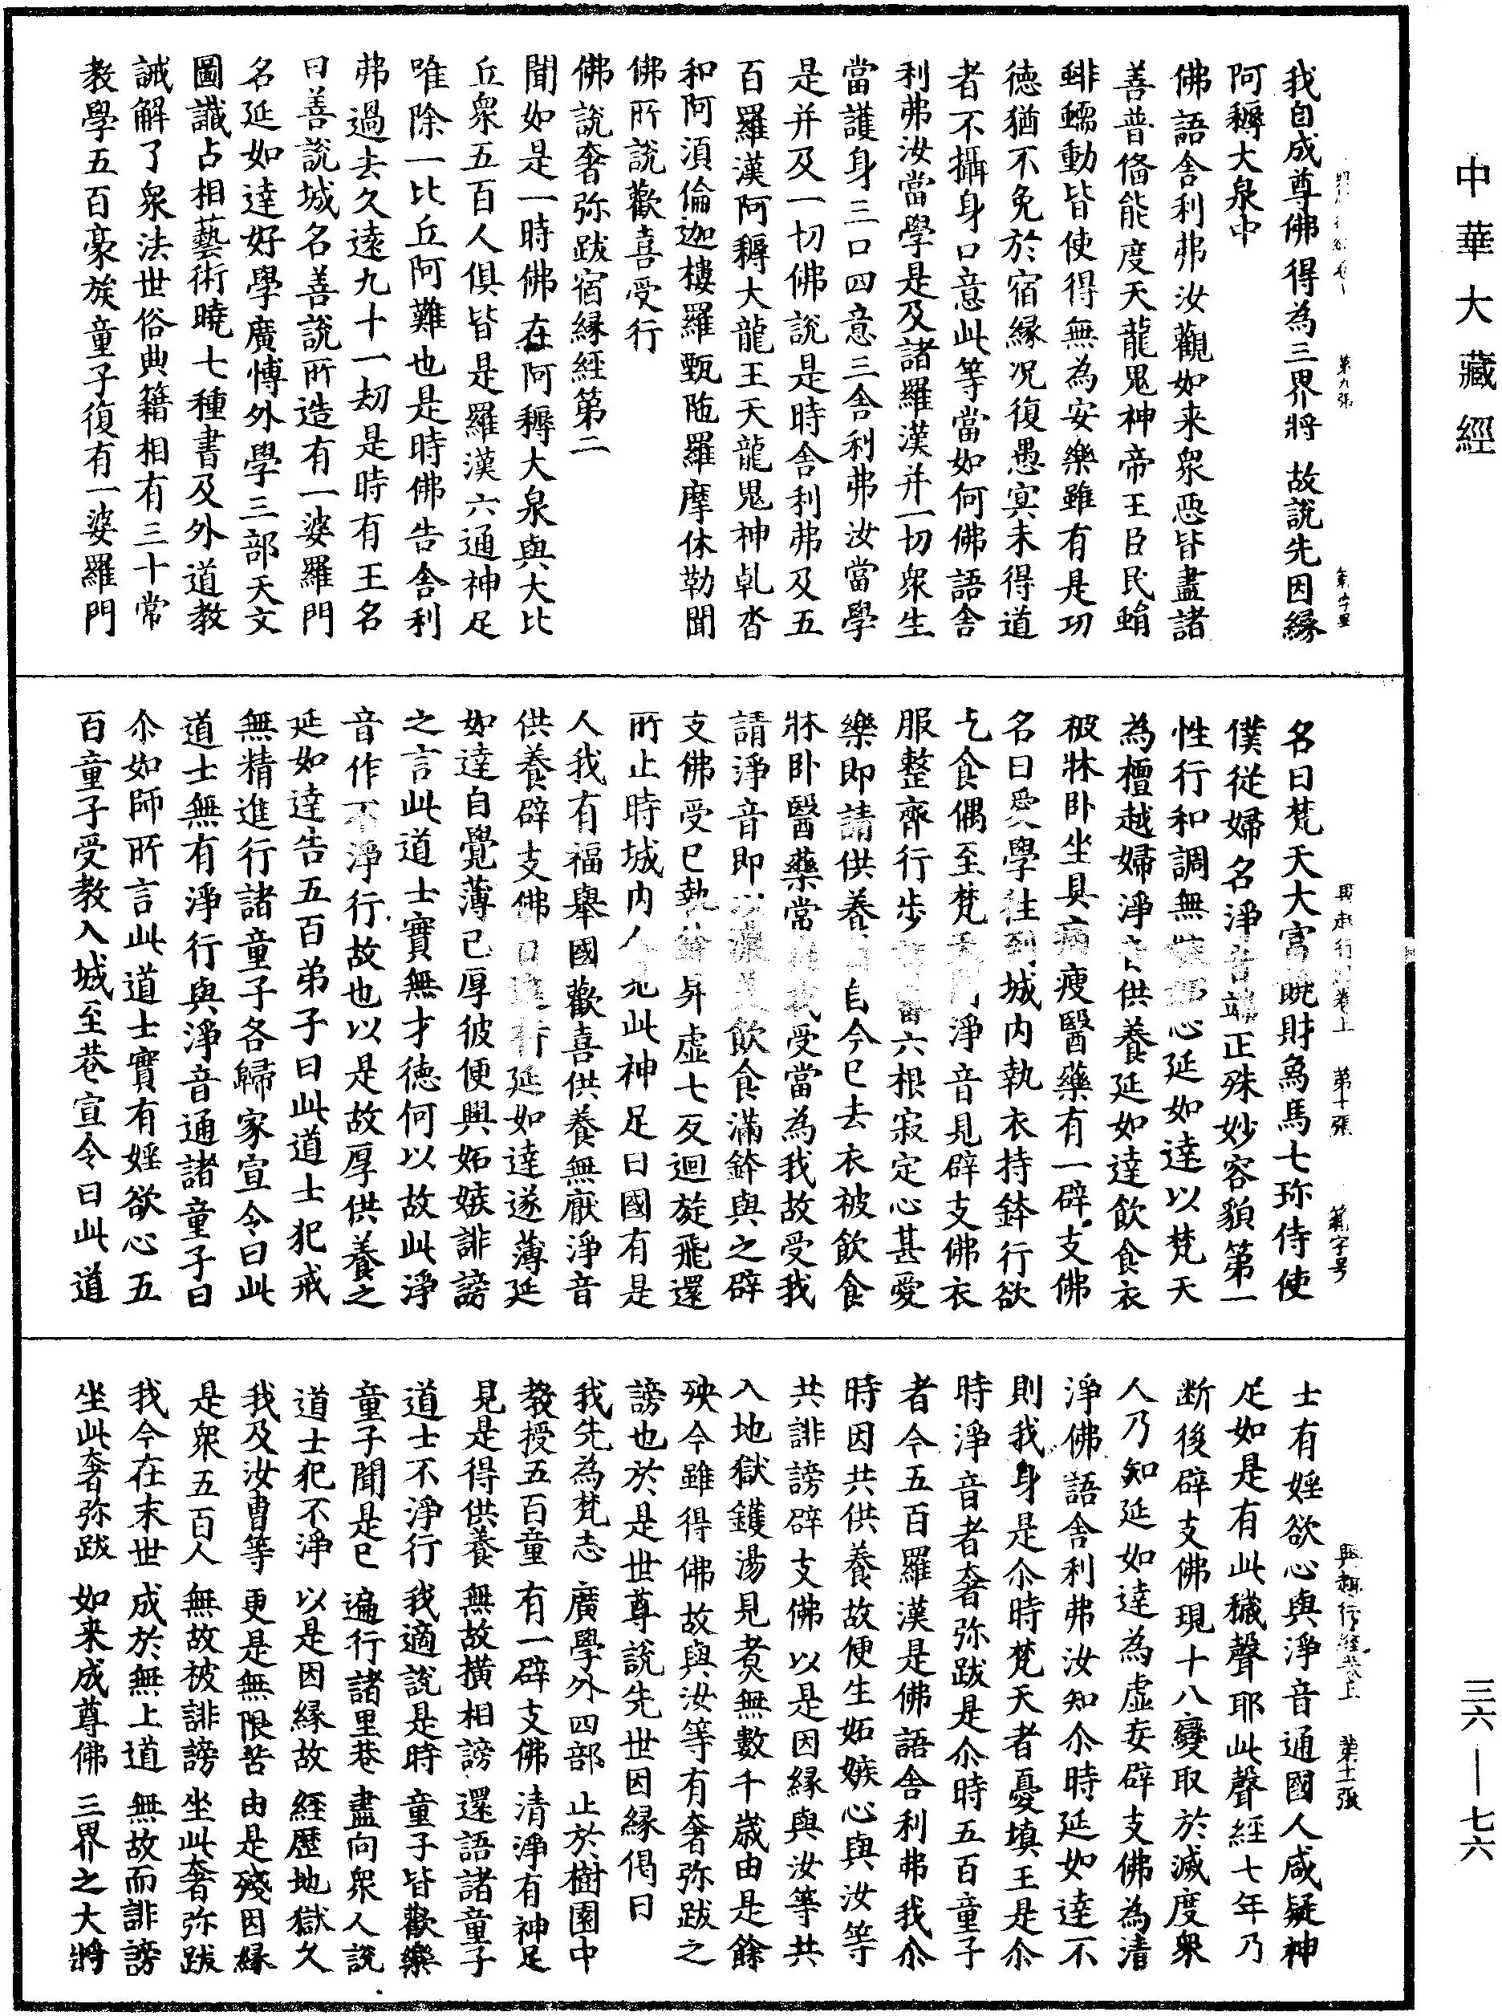 中華大藏經
我自成尊佛　得為三界將　故說先因緣
阿耨大泉中
佛語舍利弗汝觀如来衆惡皆盡諸
善普俻能度天龍鬼神帝王臣民蜎
蜚蠕動皆使得無為安樂雖有是功
德猶不免於宿緣况復愚冥未得道
者不攝身口意此等當如何佛語舍
利弗汝當學是及諸羅漢并一切衆生
當護身三口四意三舍利弗汝當學
是并及一切佛說是時舍利弗及五
百羅漢阿耨大龍王天龍鬼神乹沓
和阿須倫迦樓羅甄陁羅摩休勒聞
佛所說歡喜受行
佛說奢弥跋宿緣經第二
聞如是一時佛在阿耨大泉與大比
丘衆五百人俱皆是羅漢六通神足
唯除一比丘阿難也是時佛告舍利
弗過去久遠九十一劫是時有王名
曰善說城名善說所造有一婆羅門
名延如達好學廣博外學三部天文
圖讖占相藝術曉七種書及外道教
誡解了衆法世俗典籍相有三十常
教學五百豪族童子復有一婆羅門
第九張
名曰梵天大富饒財爲馬七珎侍使
僕從婦名淨音端正殊妙容貌第一
性行和調無嫉恚心延如達以梵天
為檀越婦淨音供養延如達飲食衣
被牀卧坐具病瘦醫藥有一辟支佛
名曰愛學往到城内執衣持鉢行欲
乞食偶至梵天門淨音見辟支佛衣
服整齊行步審六根寂定心甚愛
樂即請供養自今已去衣被飲食
牀卧醫藥常我受當為我故受我
請淨音即以濃美飲食滿鉢與之辟
支佛受已執鉢昇虛七反迴旋飛還
所止時城内人見此神足曰國有是
人我有福舉國歡喜供養無厭淨音
供養辟支佛日進行延如達遂薄延
如達自覺薄已厚彼便興妬嫉誹謗
之言此道士實無才德何以故此淨
音作不淨行故也以是故厚供養之
延如達告五百弟子曰此道士犯戒
無精進行諸童子各歸家宣令曰此
道士無有淨行與淨音通諸童子曰
尒如師所言此道士實有婬欲心五
百童子受教入城至巷宣令曰此道
興起行經卷上　第十張　範字号
士有婬欲心與淨音通國人咸疑神
足如是有此穢聲耶此聲經七年乃
断後辟支佛現十八變取於滅度衆
人乃知延如達為虛妄辟支佛為清
淨佛語舍利弗汝知尒時延如達不
則我身是尒時梵天者憂填王是尒
時淨音者奢弥跋是尒時五百童子
者今五百羅漢是佛語舍利弗我尒
時因共供養故便生妬嫉心與汝等
共誹謗辟支佛以是因緣與汝等共
入地獄鑊湯見煑無數千歲由是餘
殃今雖得佛故與汝等有奢弥跋之
謗也於是世尊說先世因緣偈曰
我先為梵志　廣學外四部　止於樹園中
教授五百童　有一辟支佛　清淨有神足
見是得供養　無故橫相謗　還語諸童子
道士不淨行　我適說是時　童子皆歡樂
童子聞是已　遍行諸里巷　盡向衆人說
道士犯不淨　以是因緣故　經歷地獄久
我及汝曹等　更是無限苦　由是殘因緣
是衆五百人　無故被誹謗　坐此奢弥跋
我今在末世　成於無上道　無故而誹謗
坐此奢弥跋　如来成尊佛　三界之大將
興起行經卷上　第十一張
三六——七六